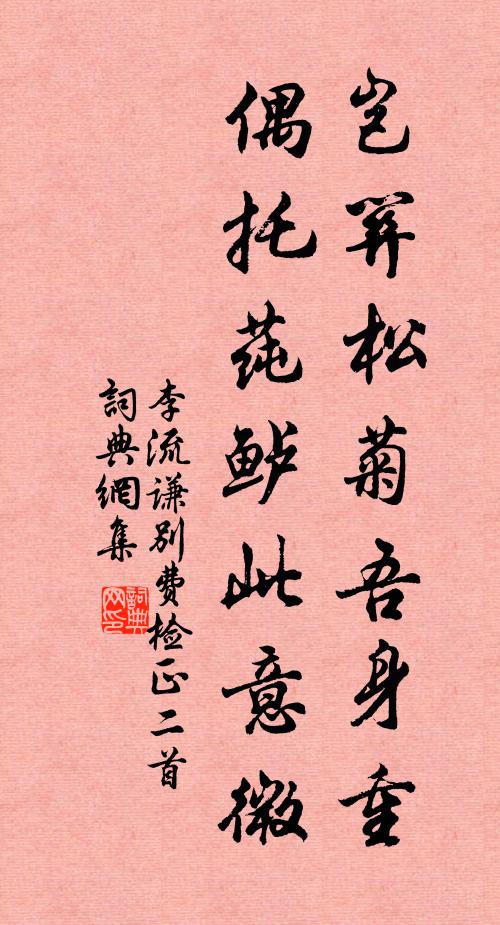 岂筭松菊吾身重
偶托莼鲈此意微
李流谦别费检正二首
詞典網集
詞典网印